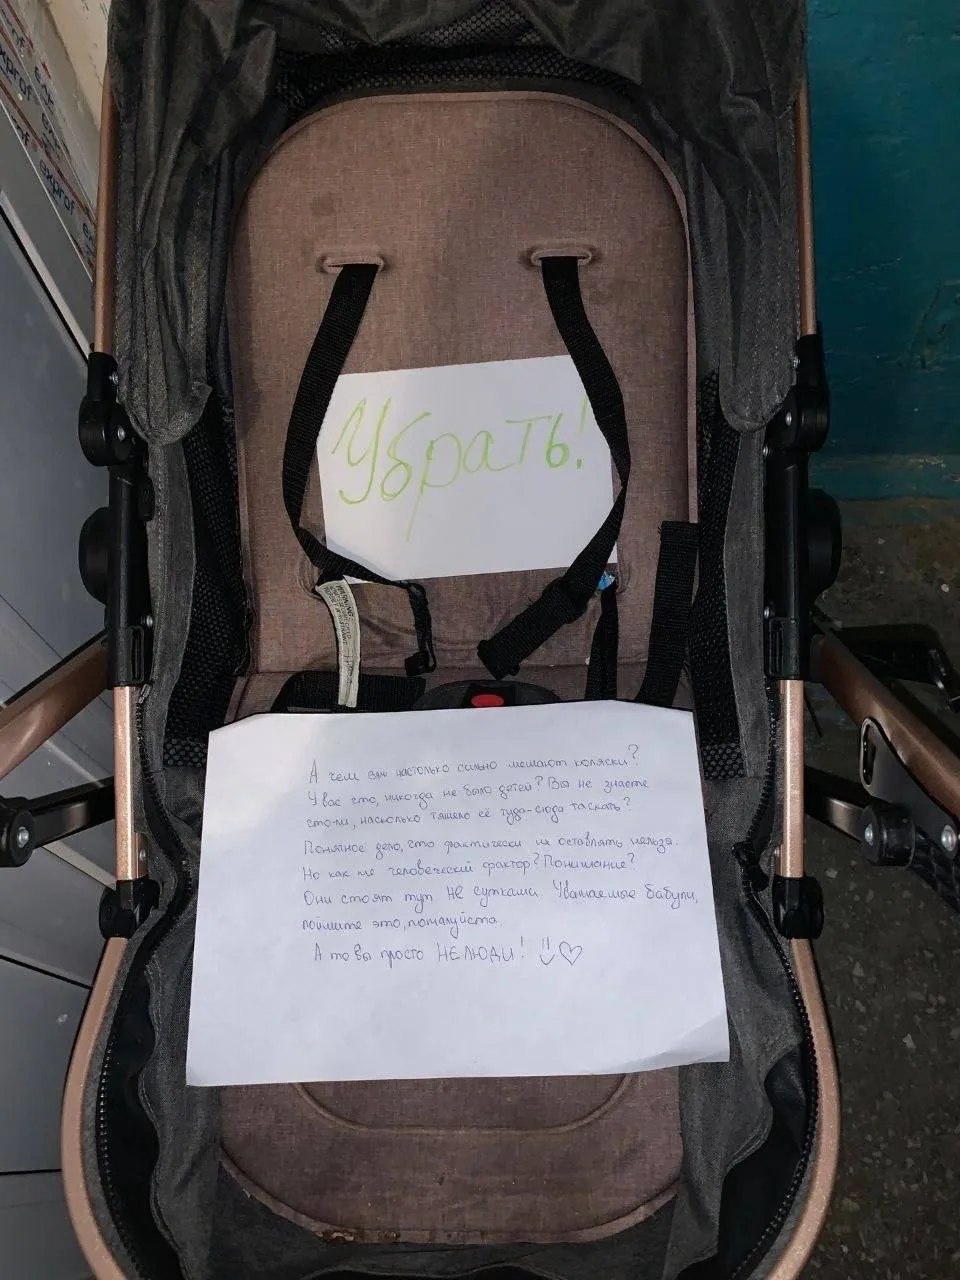 exprof
exprof
exprof
Убрать!
WARNING:
А чем вам настолько сильно мешают коляски?
У вас что, никогда не было детей? Вы не знаете
что-ли, насколько тяжело её туда-сюда таскать?
Понятное дело, что фактически их оставлять нельзя.
Но как же человеческий фактор? Понимание?
Они стоят тут НЕ сутками. Уважаемые бабули,
поймите это, пожалуйста.
А то вы просто НЕЛЮДИ!